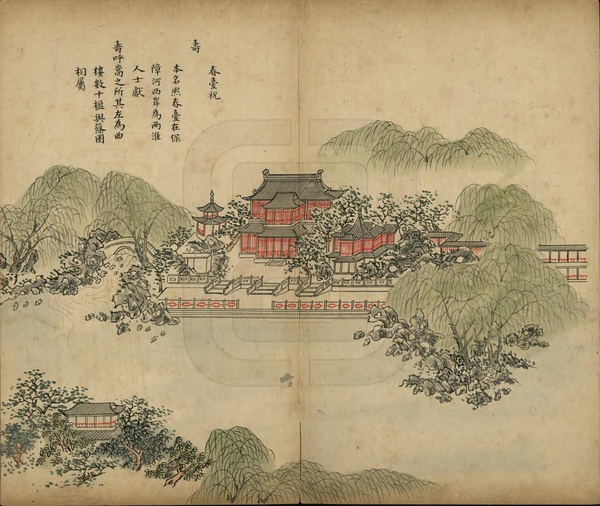 春臺祝
壽
本名熙春臺在保
障河西岸為兩淮
人士獻
壽呼嵩之所其左為曲
樓數十楹與篠園
相屬